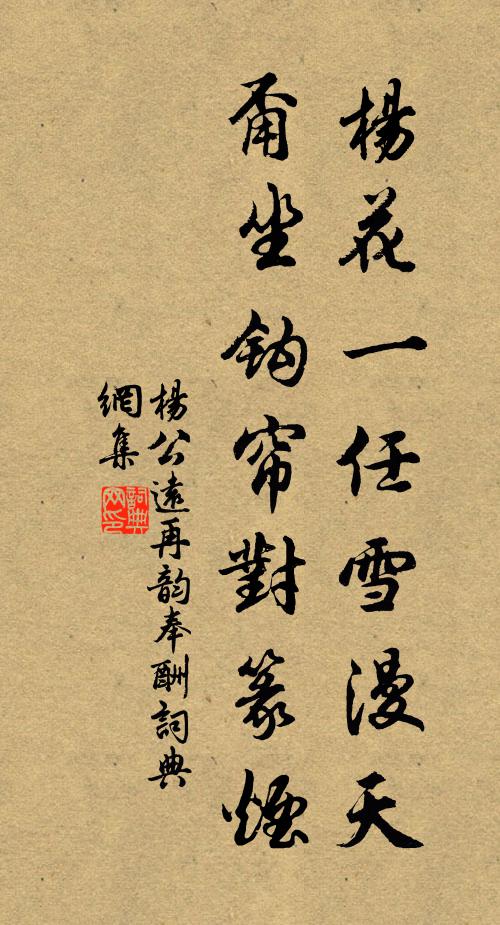 楊花一任雪漫天
甭坐鈎帘對篆煙
楊公遠再韵奉酬詞典
網集
詞典
网印